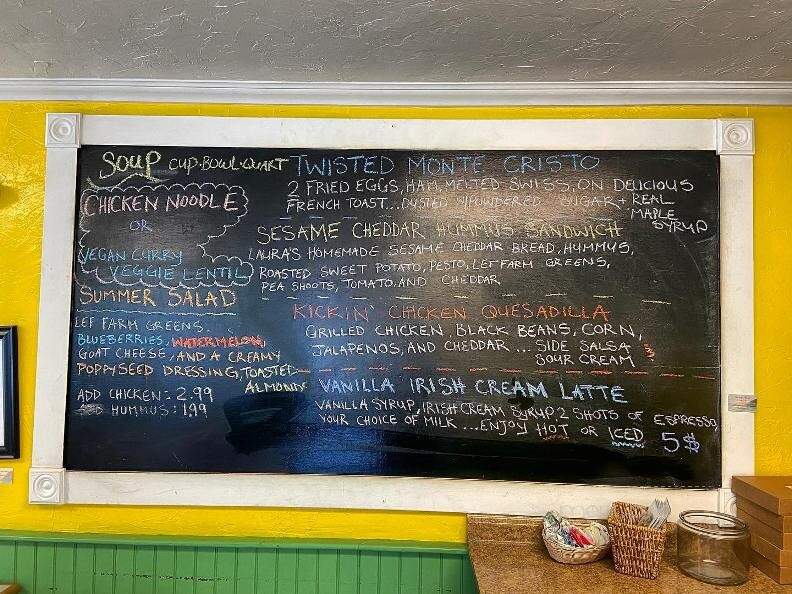 SOUP CUP·BOWL·QUART
CHICKEN NOODLE
OR
VEGAN CURRY
VEGGIE LENTIL
SUMMER SALAD
LEF FARM GREENS.
BLUEBERRIES, WATERMELON,
GOAT CHEESE, AND A CREAMY
POPPYSEED DRESSING, TOASTED
ALMONDS
ADD CHICKEN: 2.99
ADD HUMMUS: 1.99
TWISTED MONTE CRISTO
2 FRIED EGGS, HAM, MELTED SWISS, ON DELICIOUS
FRENCH TOAST... DUSTED W/POWDERED SUGAR + REAL
MAPLE
SYRUP
SESAME CHEDDAR HUMMUS SANDWICH
LAURA'S HOMEMADE SESAME CHEDDAR BREAD, HUMMUS,
ROASTED SWEET POTATO, PESTO, LEF FARM GREENS,
PEA SHOOTS, TOMATO, AND CHEDDAR
KICKIN' CHICKEN QUESADILLA
GRILLED CHICKEN BLACK BEANS, CORN,
JALAPENOS, AND CHEDDAR ... SIDE SALSA
SOUR CREAM
VANILLA IRISH CREAM LATTE
VANILLA SYRUP, IRISH CREAM SYRUP 2 SHOTS OF ESPRESSO,
YOUR CHOICE OF MILK ... ENJOY HOT OR ICED 5$